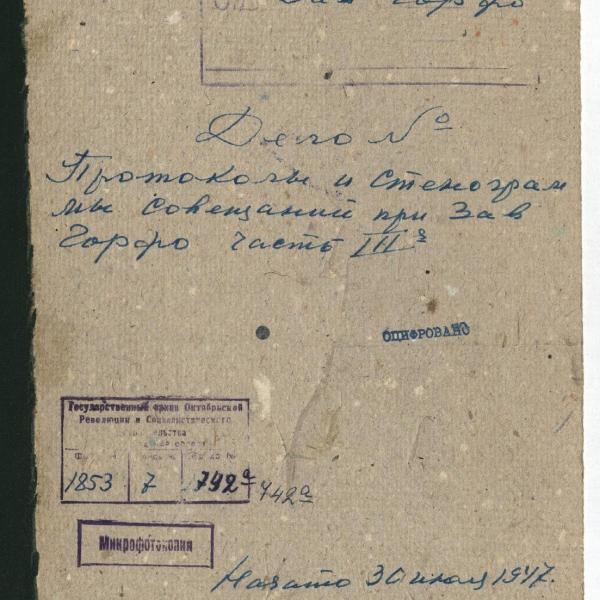 Зав Горфо
Дело №
Протоколы и стенограм
мы совещаний при Зав
Горфо часть III я
ОЦИФРОВАНО
Государственный архив Октябрьской
Революции и Социалистического
1853 7 792а 742а
Микрофотокопия
Начато 30 июля 1947.